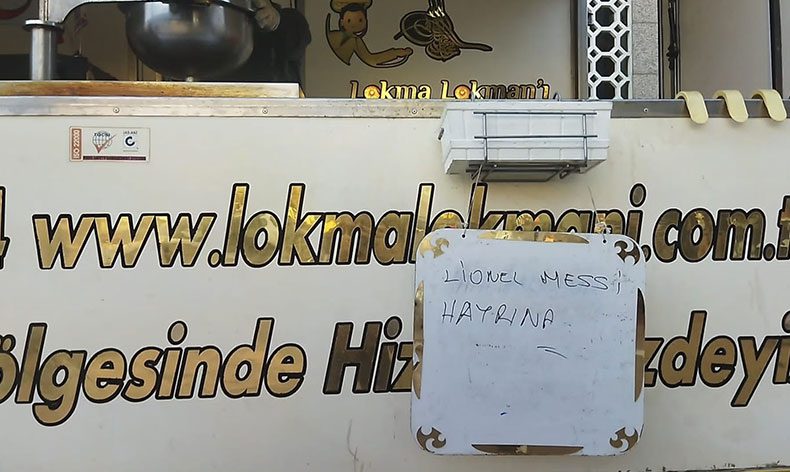 Lokma Lokman'ı
ISO 22000
www.lokmalokmani.com.t
LIONEL MESSİ
HAYRINA
ölgesinde Hiz zdeyi